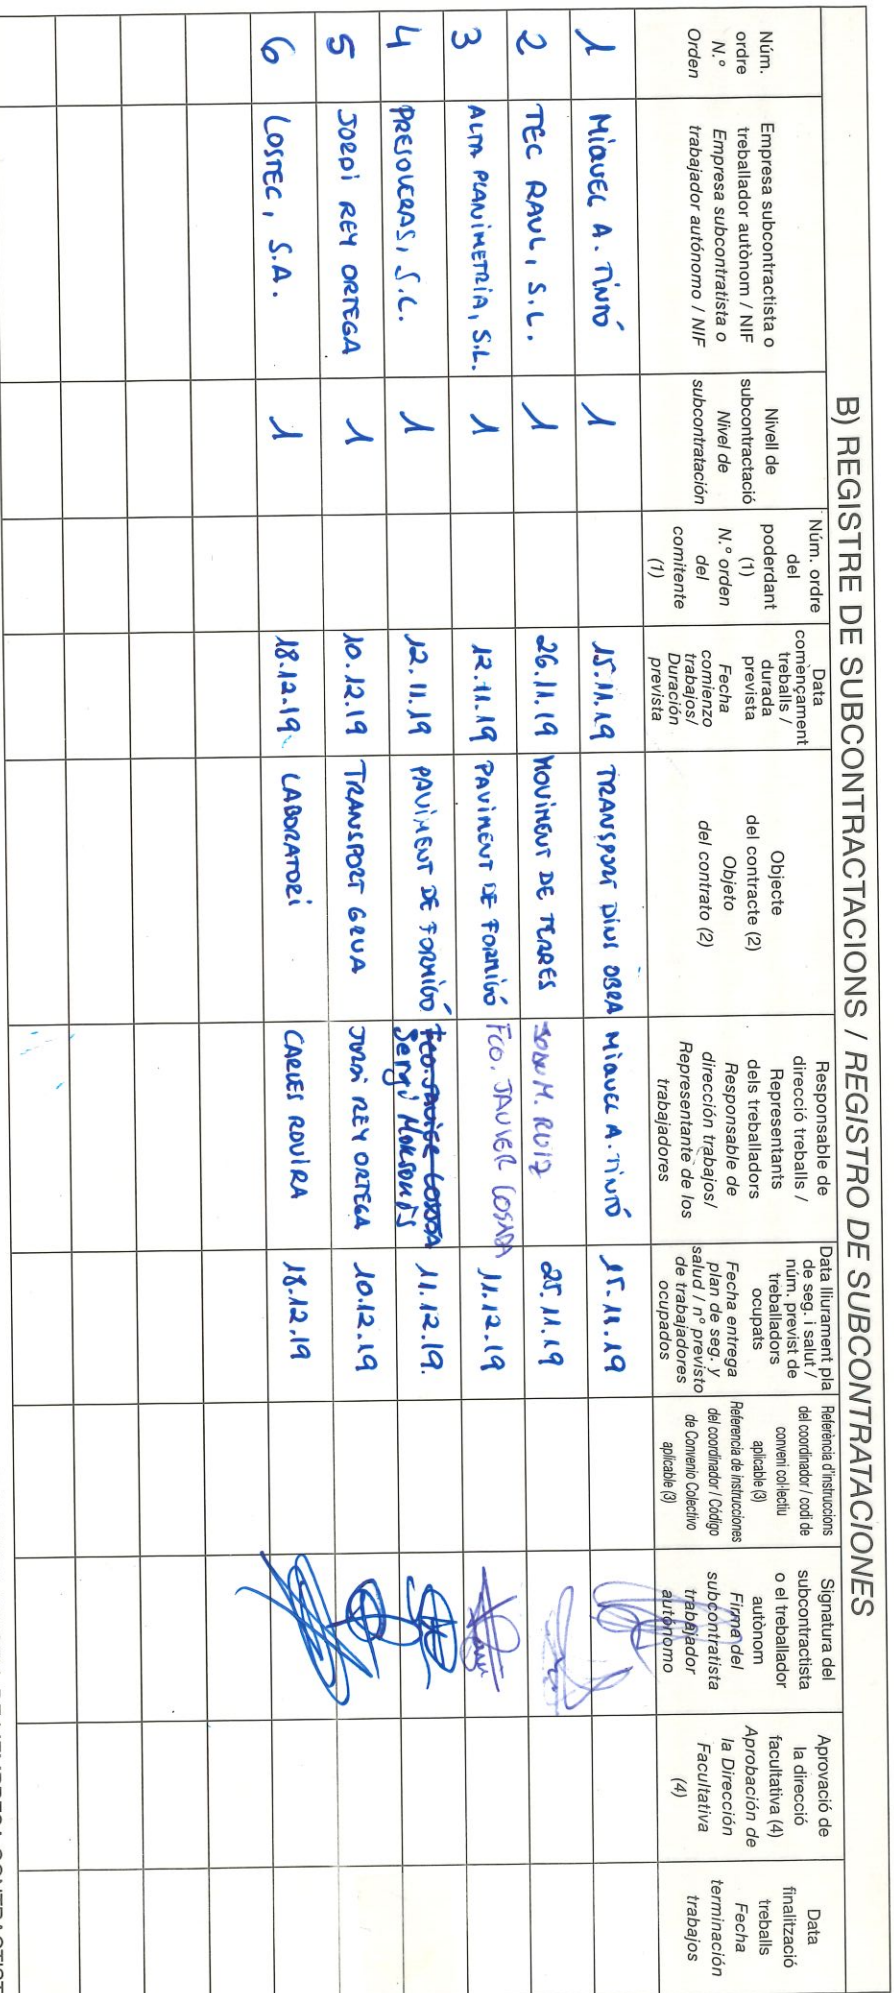 B) REGISTRE DE SUBCONTRACTACIONS / REGISTRO DE SUBCONTRATACIONES
Núm.
ordre
N.º
Orden
Empresa subcontractista o
treballador autònom / NIF
Empresa subcontratista o
trabajador autónomo / NIF
Nivell de
subcontractació
Nivel de
subcontratación
Núm. ordre
del
poderdant
(1)
N.º orden
del
comitente
(1)
Data
començament
treballs /
durada
prevista
Fecha
comienzo
trabajos/
Duración
prevista
Objecte
del contracte (2)
Objeto
del contrato (2)
Responsable de
direcció treballs /
Representants
dels treballadors
Responsable de
dirección trabajos/
Representante de los
trabajadores
Data lliurament pla
de seg. i salut /
núm. previst de
treballadors
ocupats
Fecha entrega
plan de seg. y
salud / nº previsto
de trabajadores
ocupados
Referència d'instruccions
del coordinador / codi de
conveni col·lectiu
aplicable (3)
Referencia de instrucciones
del coordinador / Código
de Convenio Colectivo
aplicable (3)
Signatura del
subcontractista
o el treballador
autònom
Firma del
subcontratista
trabajador
autónomo
Aprovació de
la direcció
facultativa (4)
Aprobación de
la Dirección
Facultativa
(4)
Data
finalització
treballs
Fecha
terminación
trabajos
1 MIQUEL A. TINTÓ 1 15.11.19 TRANSPORT DINS OBRA MIQUEL A. TINTÓ 15.11.19
2 TEC RAUL, S.L. 1 26.11.19 MOVIMENT DE TERRES M. RUIZ 25.11.19
3 ALTA PLANIMETRIA, S.L. 1 12.11.19 PAVIMENT DE FORMIGÓ FCO. JAVIER LOSADA 11.12.19
4 1 12.11.19 PAVIMENT DE FORMIGÓ FCO. JAVIER LOSADA
Sergi 11.12.19.
5 JORDI REY ORTEGA 1 10.12.19 TRANSPORT GRUA JORDI REY ORTEGA 10.12.19
6 LOSTEC, S.A. 1 18.12.19 LABORATORI CARLES ROVIRA 18.12.19